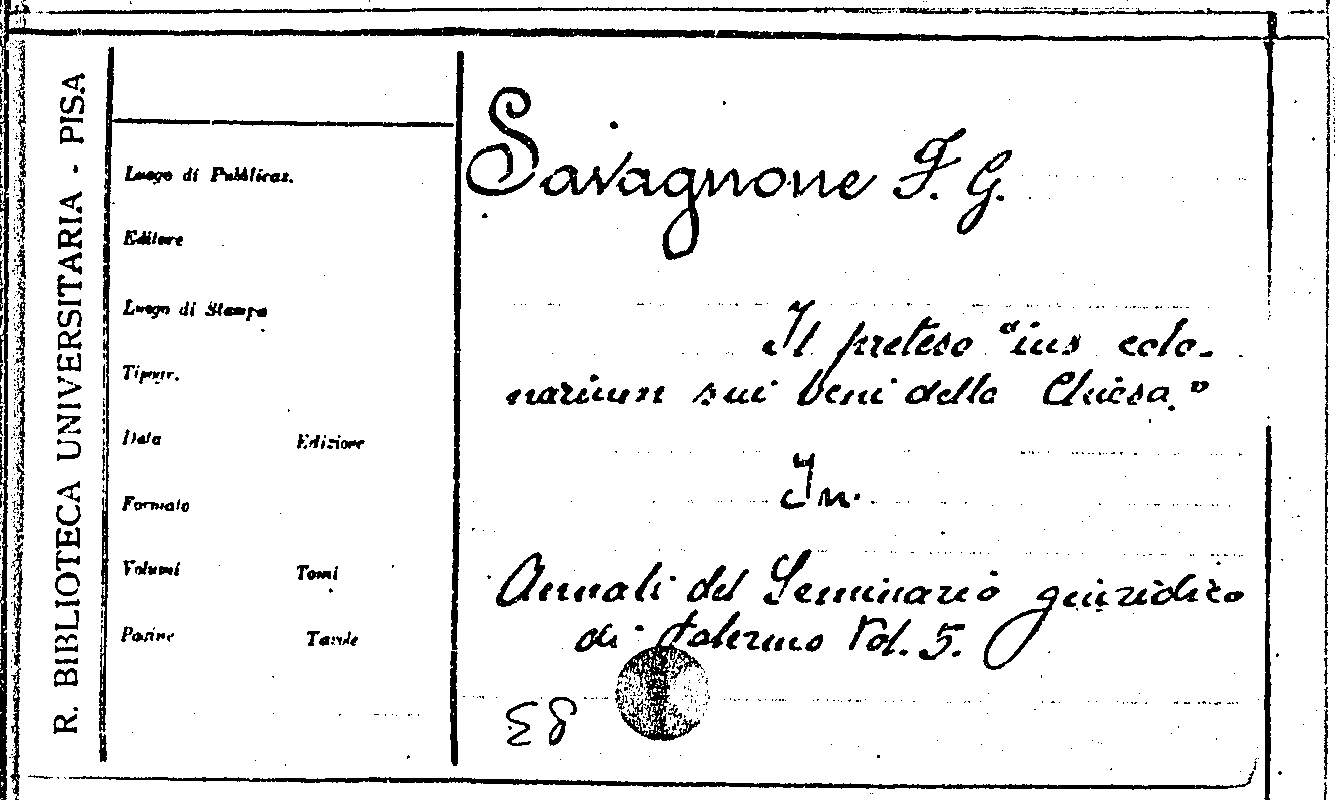 R. BIBLIOTECA UNIVERSITARIA - PISA
Luogo di Pubblicaz.
Editore
Luogo di Stampa
Tipogr.
Data Edizione
Formato
Volumi Tomi
Pagine Tavole
Savagnone F. G.
Il preteso "ius colo-
narium sui beni della Chiesa."
In.
Annali del Seminario giuridico
di Palermo Vol. 5.